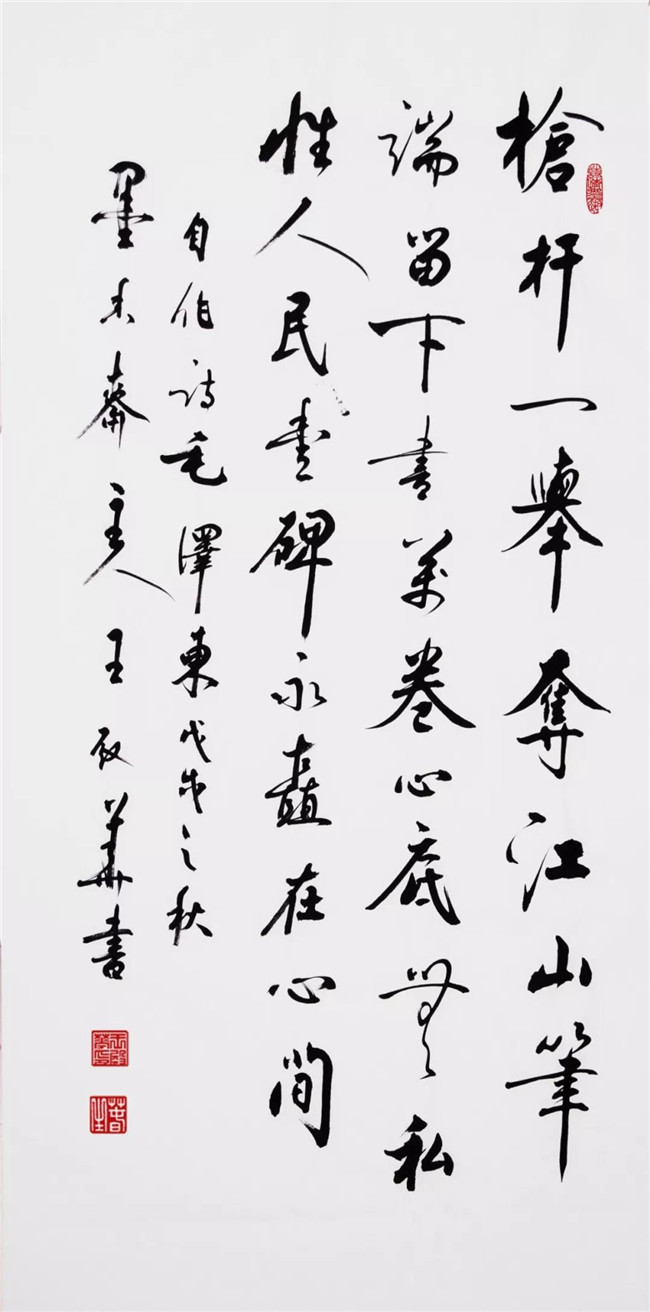 槍杆一舉奪江山筆
端留下書萬卷心底無私
性人民豐碑永矗在心間
自作詩毛澤東戊戌之秋
墨香齋主人王啟華書